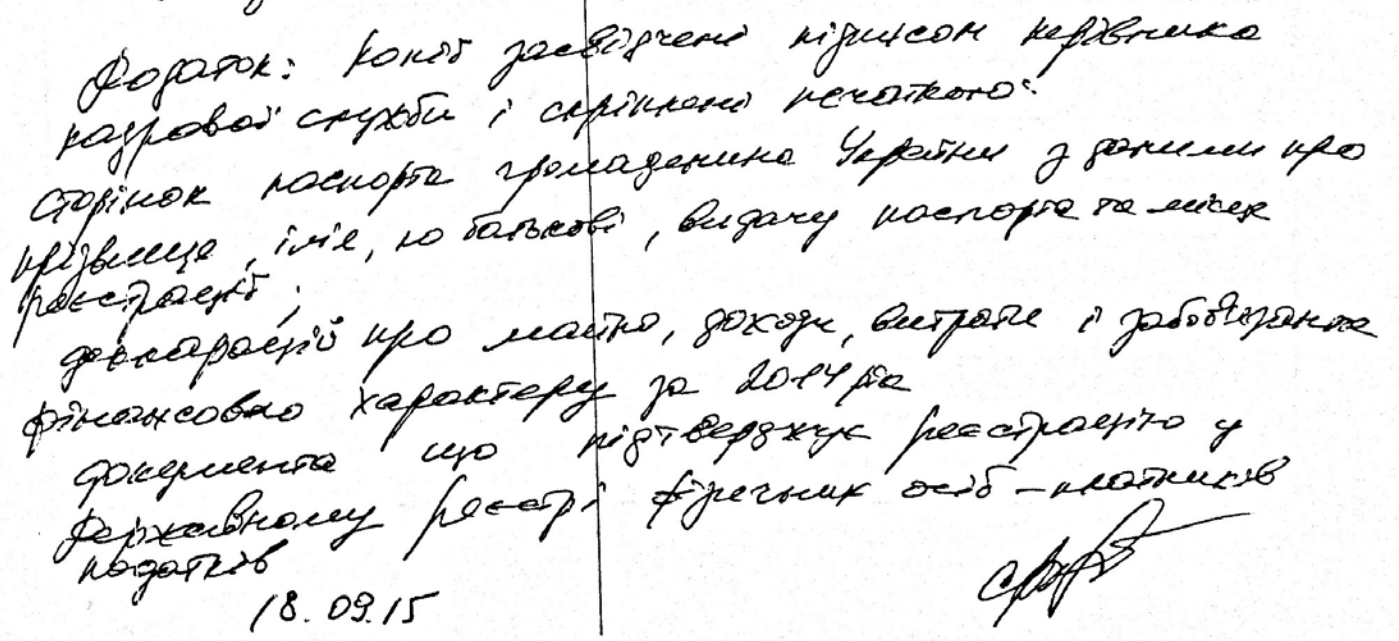 Додаток: копії засвідчені підписом керівника
кадрової служби і скріплені печаткою:
сторінок паспорта громадянина України з даними про
прізвище, ім'я, по батькові, видачу паспорта та місце
реєстрації;
декларації про майно, доходи, витрати і зобов'язання
фінансового характеру за 2014 рік
документа що підтверджує реєстрацію у
Державному реєстрі фізичних осіб – платників
податків
18.09.15